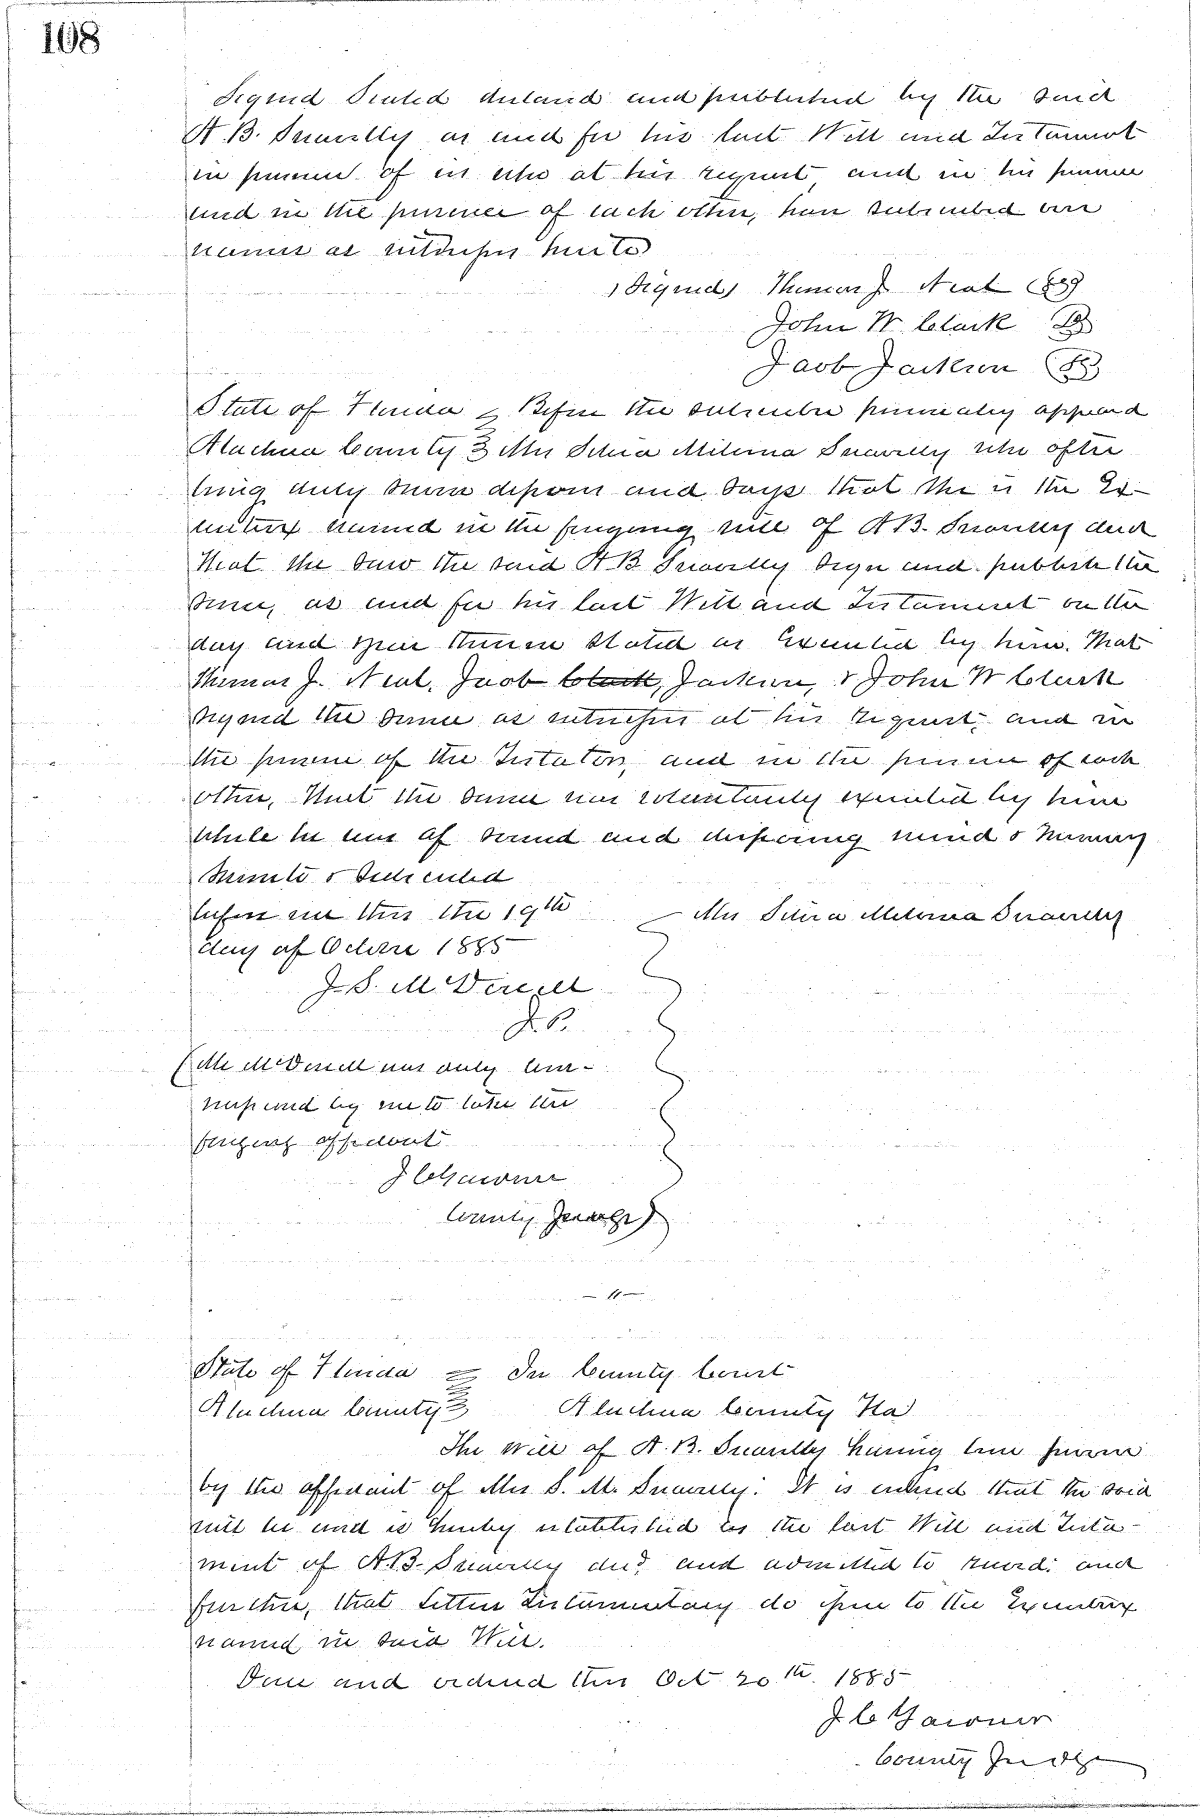 108
Signed Sealed declared and published by the said
A. B. Snowelly as and for his last Will and Testament
in presence of us who at his request, and in his presence
and in the presence of each other, have subscribed our
names as witnesses hereto
(Signed) Thomas J. Neal (LS)
John W. Clark (LS)
Jacob Jackson (LS)
State of Florida } Before the subscriber personally appeared
Alachua County } Mrs Milerna Snowelly who after
being duly sworn deposes and says that she is the Ex-
ecutrix named in the foregoing will of A B. Snowelly decd
That she saw the said A B Snowelly sign and publish the
same, as and for his last Will and Testament on the
day and year therein stated as executed by him. That
Thomas J. Neal, Jacob Clark, Jackson, & John W Clark
signed the same as witnesses at his request, and in
the presence of the Testator, and in the presence of each
other, That the same was voluntarily executed by him
while he was of sound and disposing mind & memory
Sworn to & Subscribed
before me this the 19th Mrs Milerna Snowelly
day of October 1885
J. S. McDowell
J. P.
(Mr McDowell was duly com-
missioned by me to take the
foregoing affidavit
J C Gardner
County Judge)
— " —
State of Florida } In County Court
Alachua County } Alachua County Fla
The will of A. B. Snowelly having been proven
by the affidavit of Mrs S. M. Snowelly: It is ordered that the said
will be and is hereby established as the last Will and Testa-
ment of A. B. Snowelly decd and admitted to record: and
further, that Letters Testamentary do issue to the Executrix
named in said Will.
Done and ordered this Oct 20th. 1885
J C Gardner
County Judge